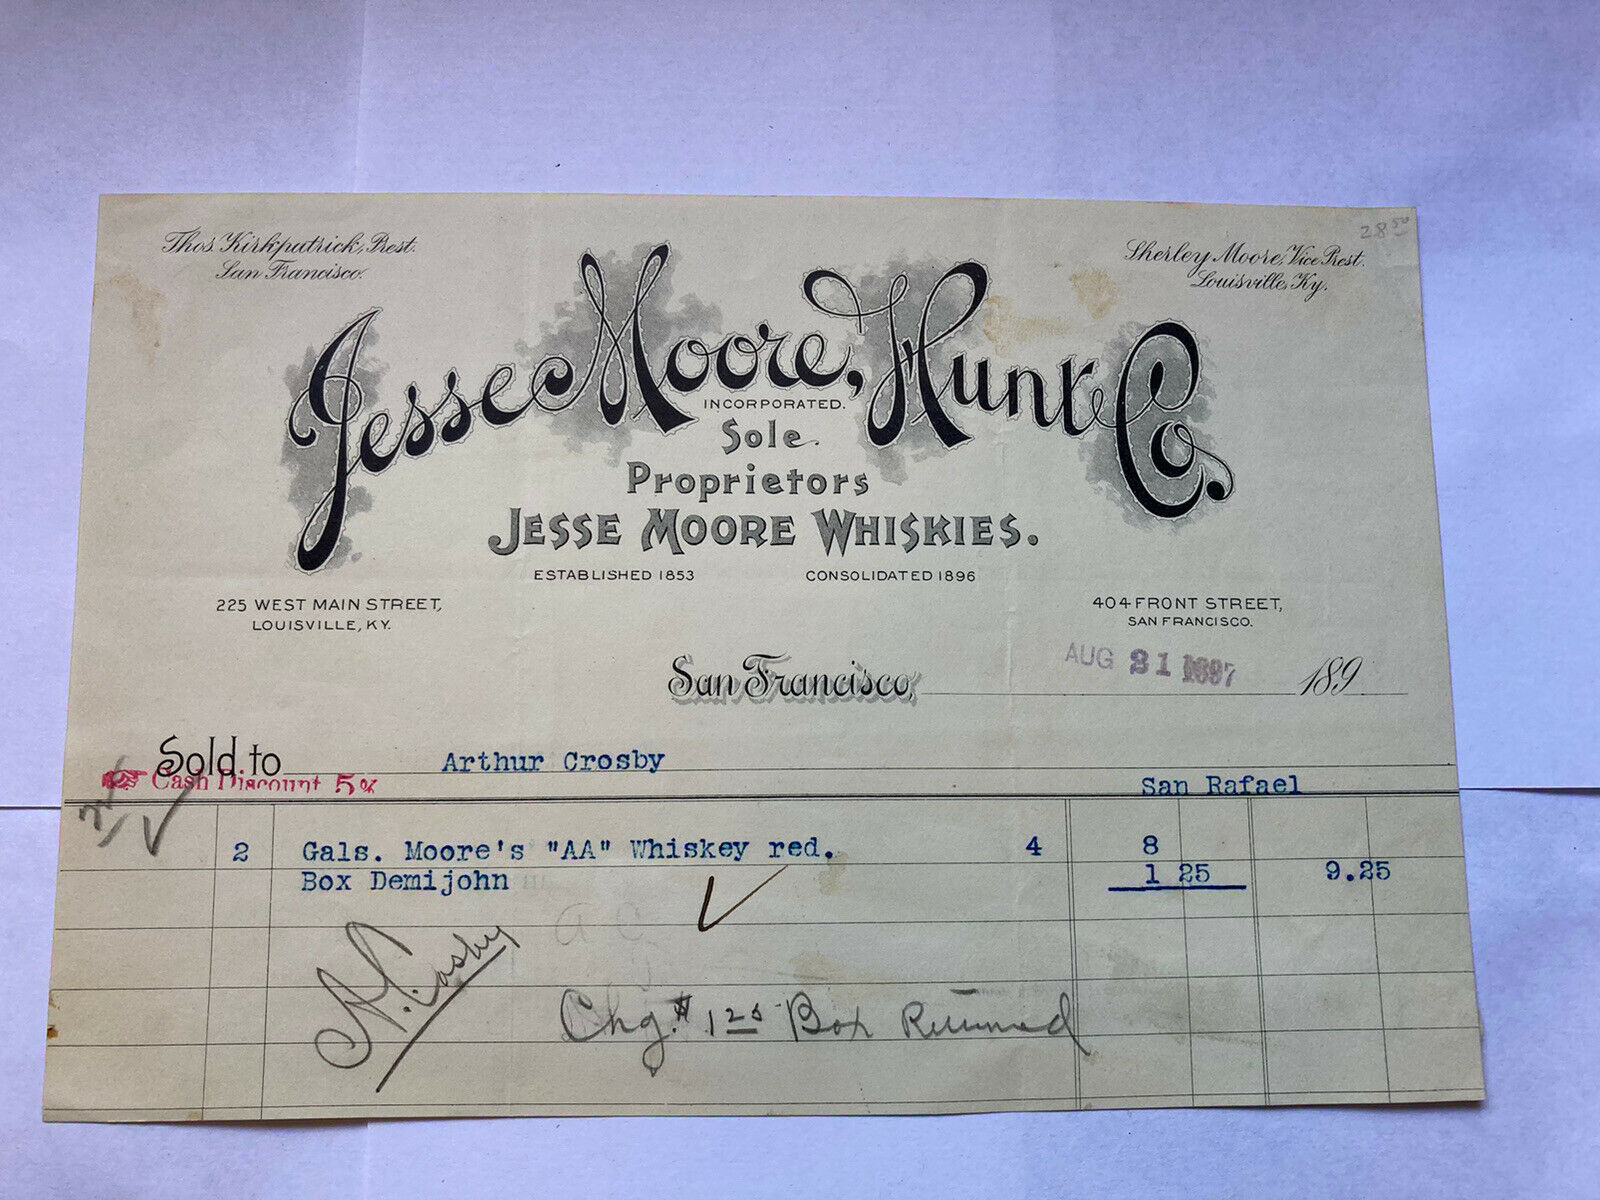 28 50
Thos. Kirkpatrick, Prest.
San Francisco.
Sherley Moore, Vice Prest.
Louisville, Ky.
Jesse Moore, Hunt Co.
INCORPORATED.
Sole
Proprietors
JESSE MOORE WHISKIES.
ESTABLISHED 1853 CONSOLIDATED 1896
225 WEST MAIN STREET,
LOUISVILLE, KY.
404 FRONT STREET,
SAN FRANCISCO.
San Francisco, AUG 31 1897 189
Sold to Arthur Crosby
Cash Discount 5% San Rafael
2 Gals. Moore's "AA" Whiskey red. 4 8
Box Demijohn 1 25 9.25
A C
A. Crosby
Chg. $ 1 25 Box Returned